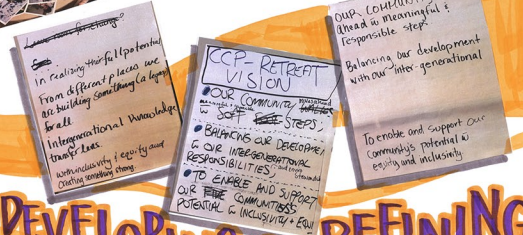 in realizing their full potential
From different places we
are building something (a legacy)
for all.
Intergenerational Knowledge
transfer lens.
with inclusivity & equity our
Creating something strong.
CCP-RETREAT
VISION
OUR COMMUNITY
SOFT STEPS,
BALANCING OUR DEVELOPMENT
OUR INTERGENERATIONAL
RESPONSIBILITIES,
TO ENABLE AND SUPPORT
OUR COMMUNITIES
POTENTIAL INCLUSIVITY + EQUI
OUR COMMUNITY
ahead is meaningful &
responsible step.
Balancing our development
with our inter-generational
To enable and support our
community's potential
equity and inclusivity
DEVELOP
REFINING